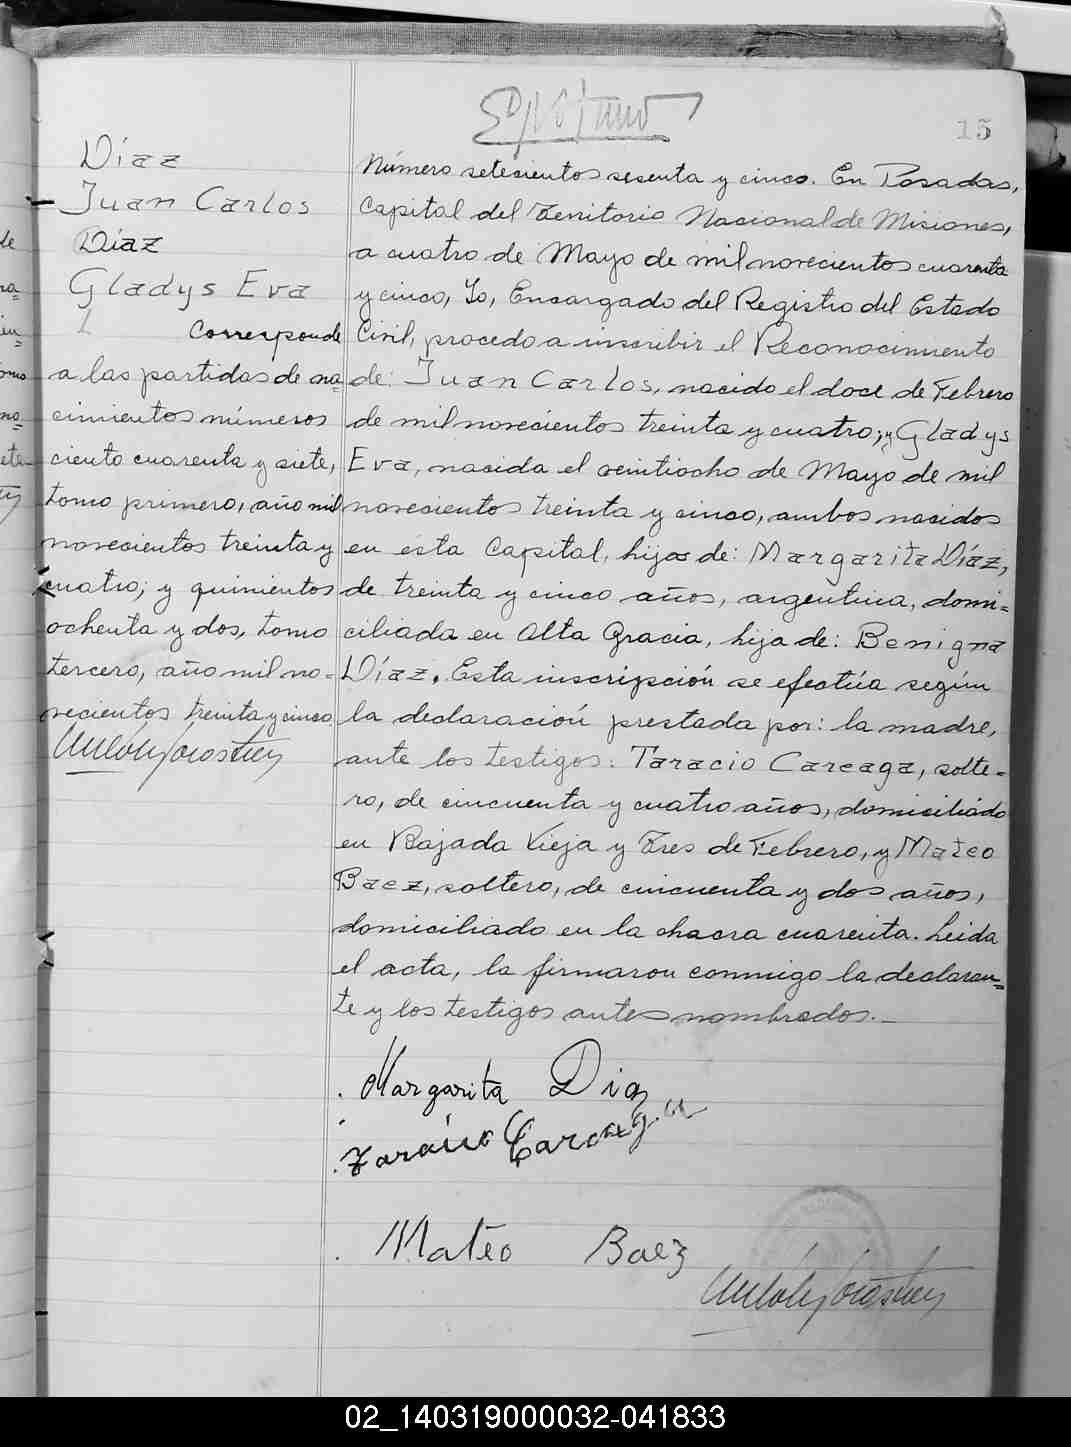 15
Díaz
Juan Carlos
Díaz
Gladys Eva
Corresponde
a las partidas de na=
cimientos números
ciento cuarenta y siete,
tomo primero, año mil
novecientos treinta y
cuatro; y quinientos
ochenta y dos, tomo
tercero, año mil no=
vecientos treinta y cinco.
Número setecientos sesenta y cinco. En Posadas,
Capital del Territorio Nacional de Misiones,
a cuatro de Mayo de mil novecientos cuarenta
y cinco, Yo, Encargado del Registro del Estado
Civil, procedo a inscribir el Reconocimiento
de: Juan Carlos, nacido el doce de Febrero
de mil novecientos treinta y cuatro; y Gladys
Eva, nacida el veintiocho de Mayo de mil
novecientos treinta y cinco, ambos nacidos
en ésta Capital, hijos de: Margarita Díaz,
de treinta y cinco años, argentina, domi=
ciliada en Alta Gracia, hija de: Benigna
Díaz. Esta inscripción se efectúa según
la declaración prestada por: la madre,
ante los testigos: Taracio Careaga, solte=
ro, de cincuenta y cuatro años, domiciliado
en Bajada Vieja y Tres de Febrero, y Mateo
Baez, soltero, de cincuenta y dos años,
domiciliado en la chacra cuarenta. Leida
el acta, la firmaron conmigo la declaran=
te y los testigos antes nombrados.
Margarita Diaz
Taracio Careaga
Mateo Baez
02_140319000032-041833